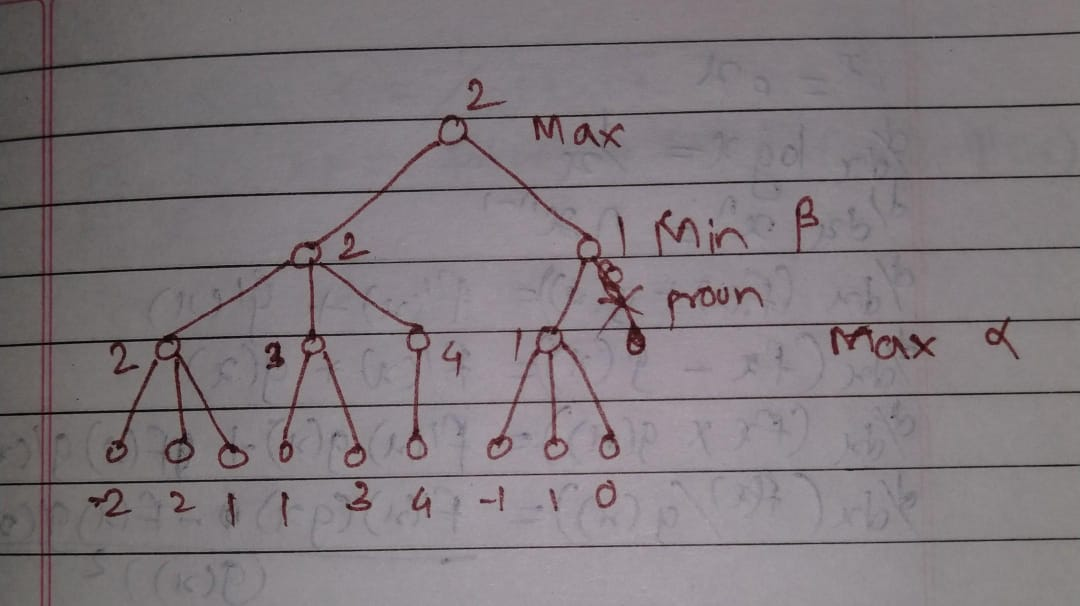 2
Max
2 1 Min β
proun
2 3 4 1 Max α
-2 2 1 1 3 4 -1 1 0